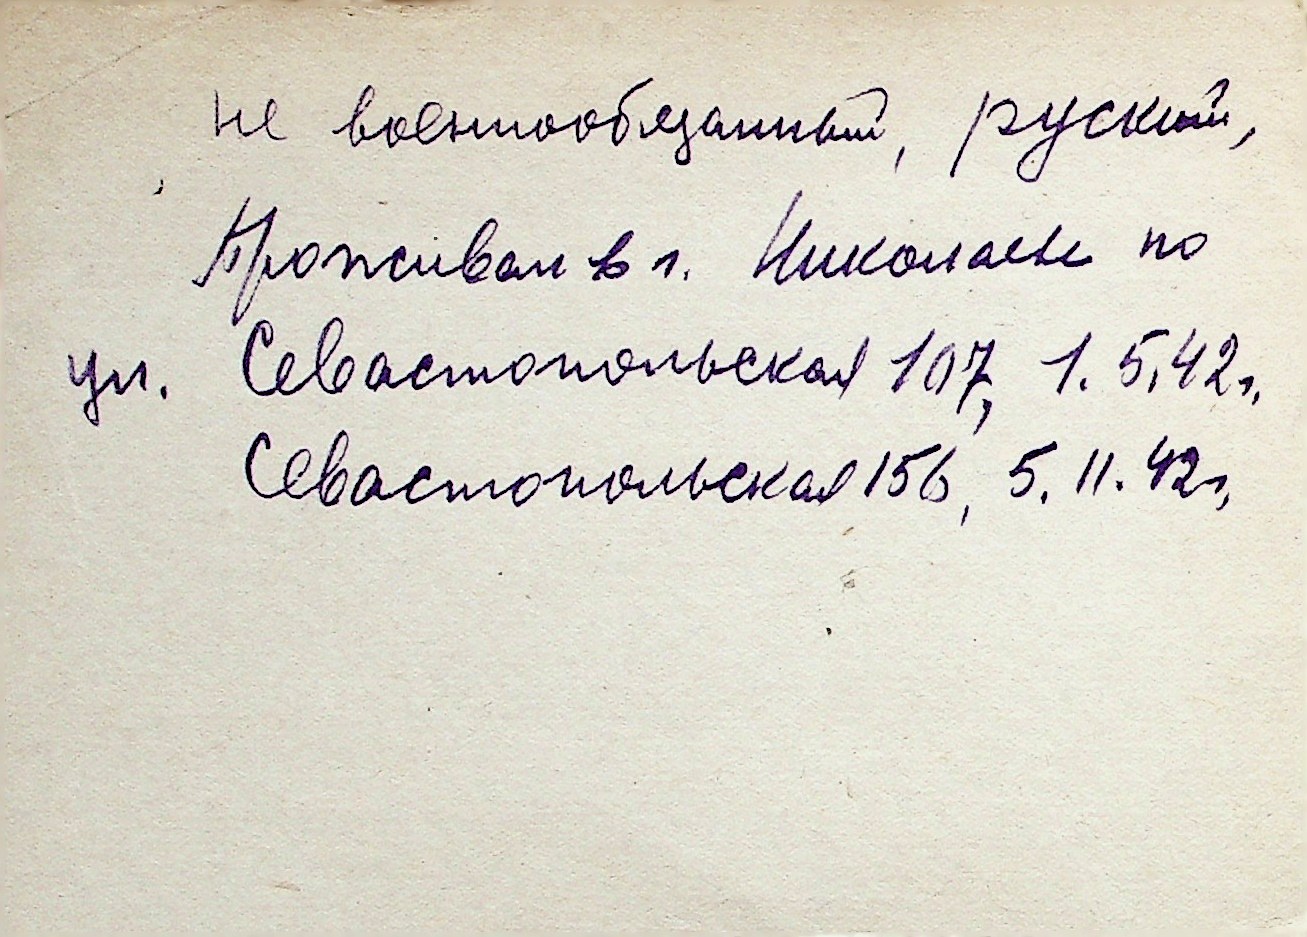 не военнообязанный, руский,
Проживал в г. Николаеве по
ул. Севастопольская 107, 1.5.42г,
Севастопольская 156, 5.11.42г,